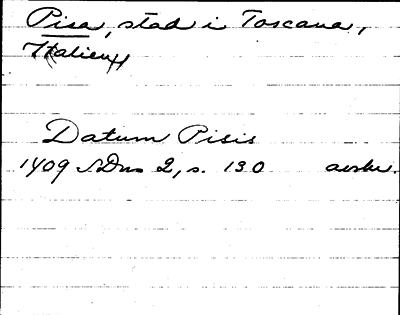 Pisa, stad i Toscana,
Italien
Datum Pisis
1409 SDns 2, s. 130 avskr.